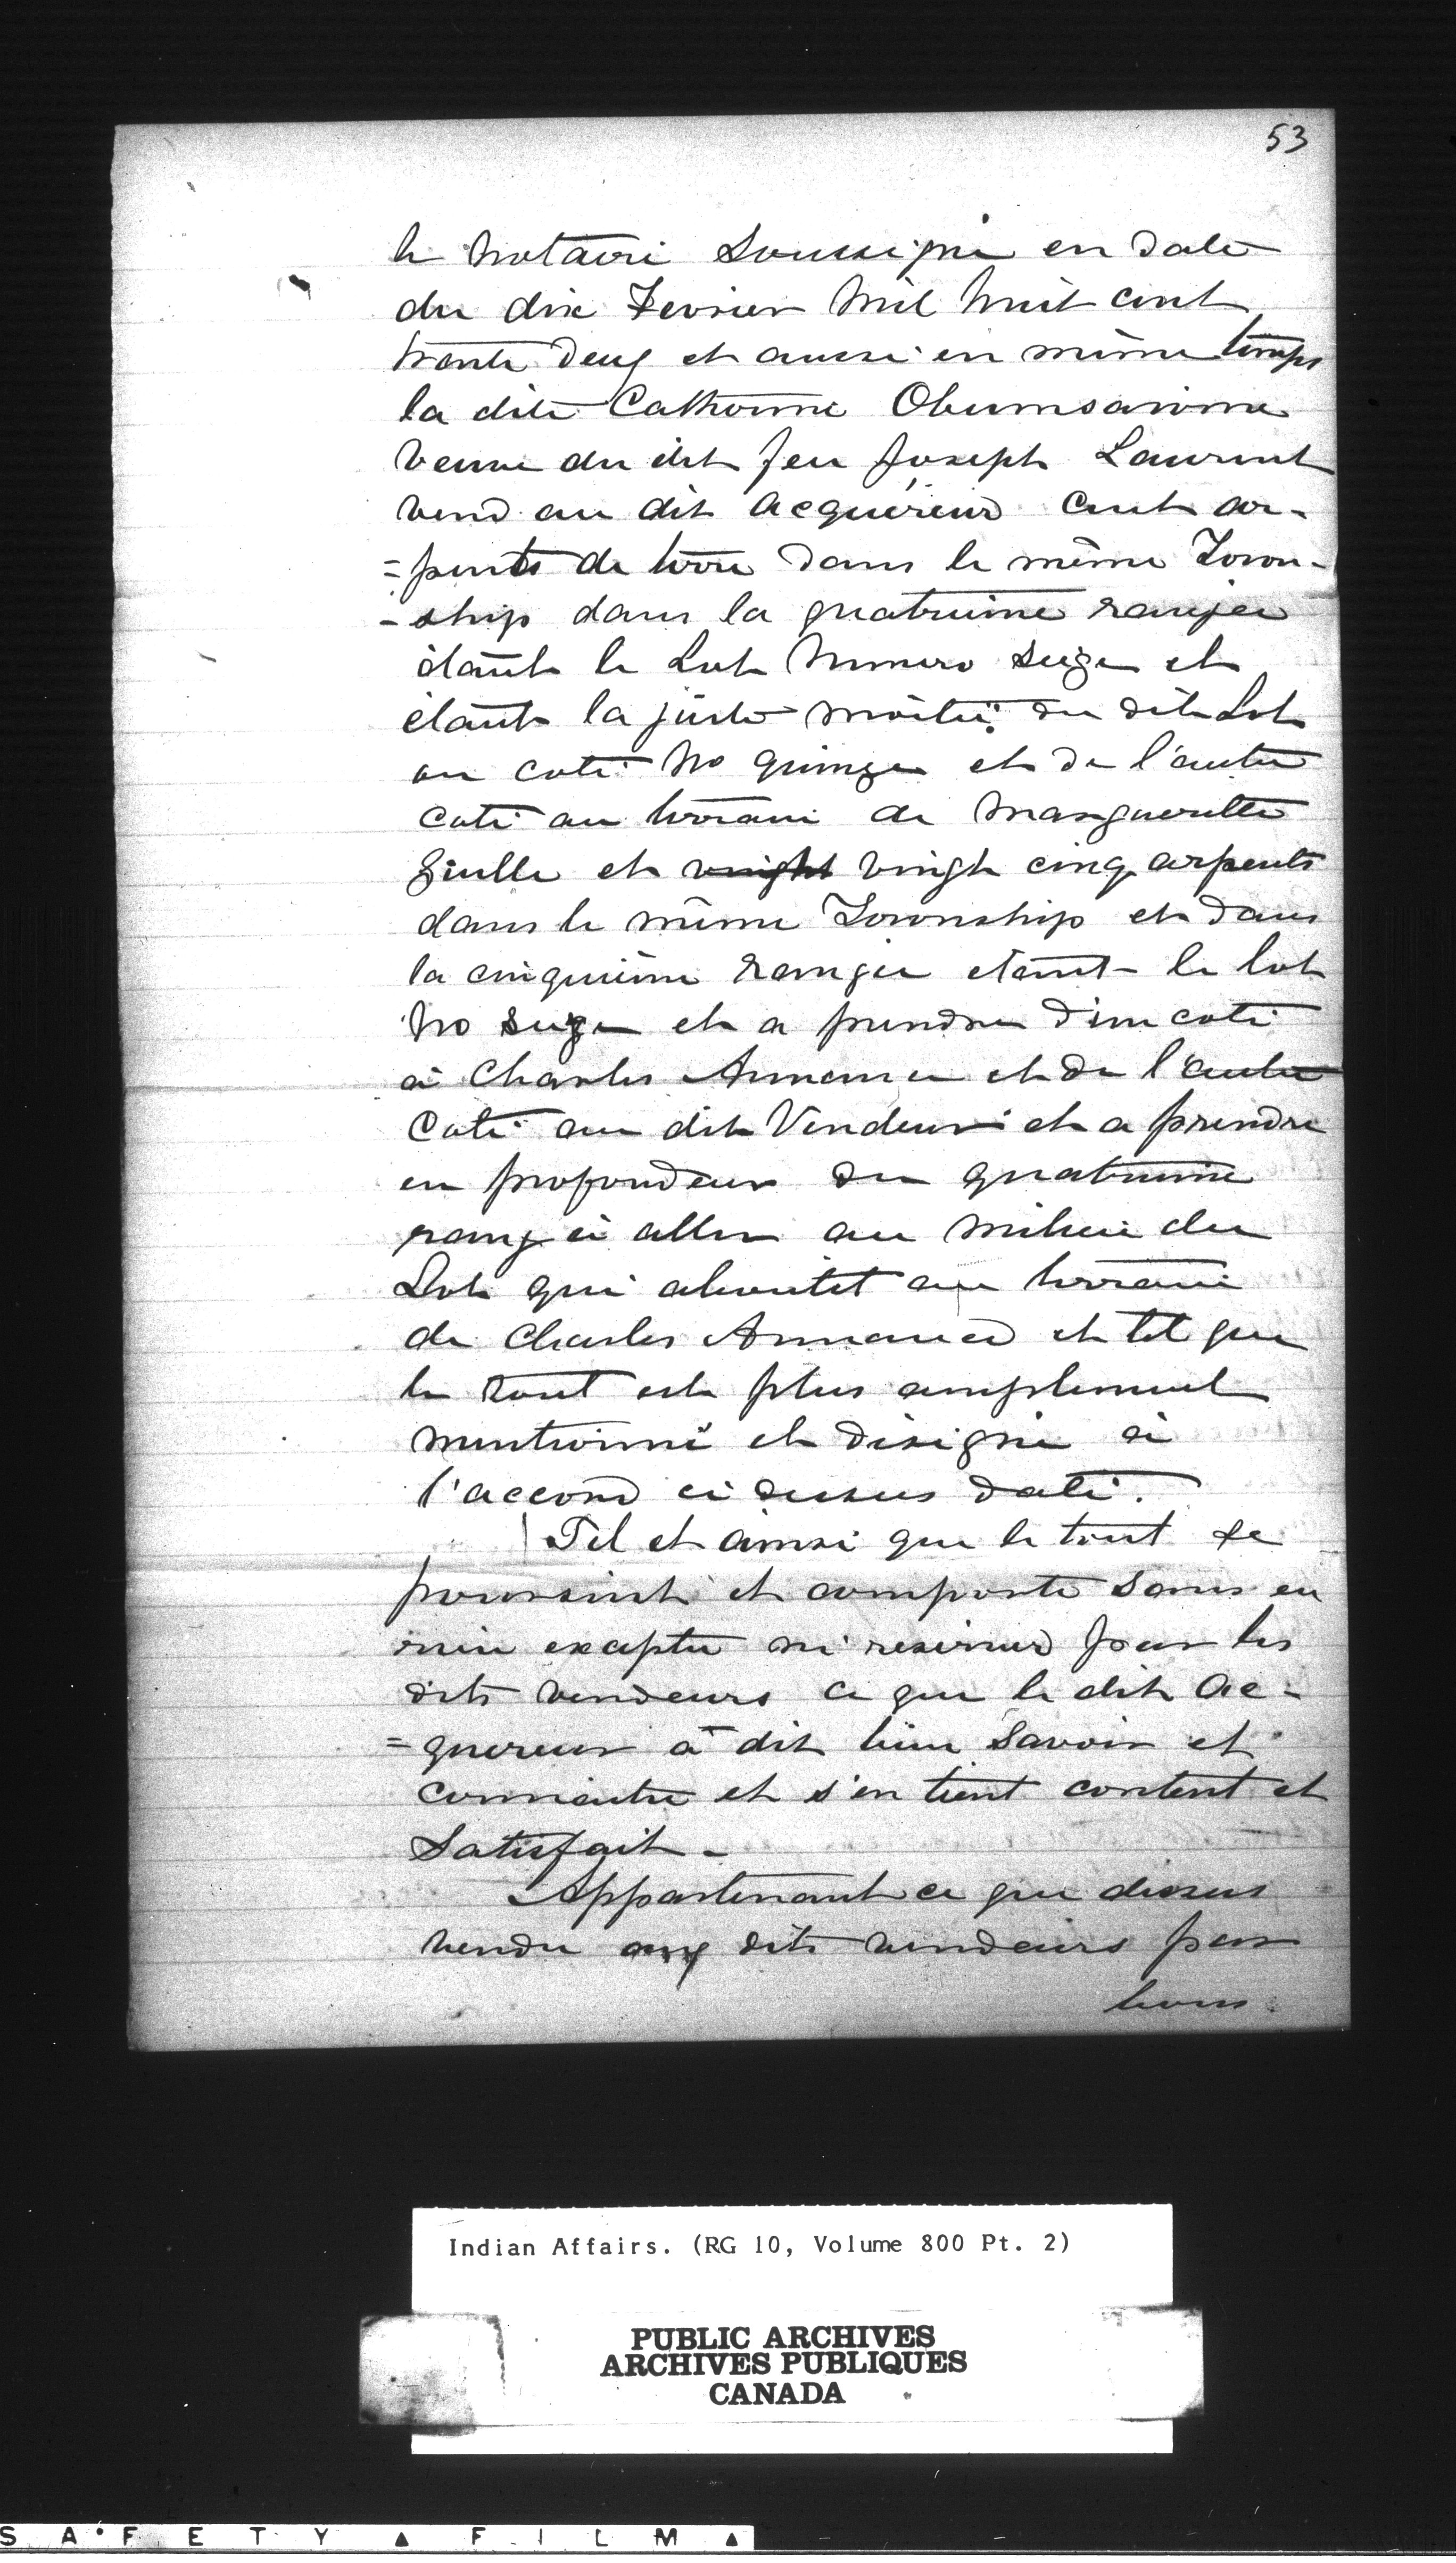 53
le Notaire Soussigné en date
du dix Fevrier Mil huit cent
trente deux et aussi en même temps
la dite Catherine Obumsawine
veuve du dit feu Joseph Laurent
vend au dit acquéreur cent ar-
=pents de terre dans le même Town-
-ship dans la quatrieme rangée
étant le Lot Numero seize et
étant la juste moitié du dit Lot
au coté No quinze et de l'autre
coté au terrain de Margueritte
Gille et vingt vingt cinq arpents
dans le même Township et dans
la cinquième rangée etant le lot
No seize et a prendre d'un coté
à Charles Annance et de l'autre
coté au dit Vendeur et a prendre
en profondeur du quatrieme
rang à aller au milieu du
Lot qui aboutit au terrain
de Charles Annance et tel que
le tout est plus amplement
mentionné et désigné à
l'accord ci dessus daté.
Tel et ainsi que le tout se
poursuit et comporte sans en
rien excepter ni reserver par les
dits vendeurs ce que le dit Ac-
=quereur à dit bien savoir et
connaitre et s'en tient content et
Satisfait -
Appartenant ce que dessus
vendu aux dits vendeurs par
bons
Indian Affairs. (RG 10, Volume 800 Pt. 2)
PUBLIC ARCHIVES
ARCHIVES PUBLIQUES
CANADA
SAFETY ▲ FILM ▲